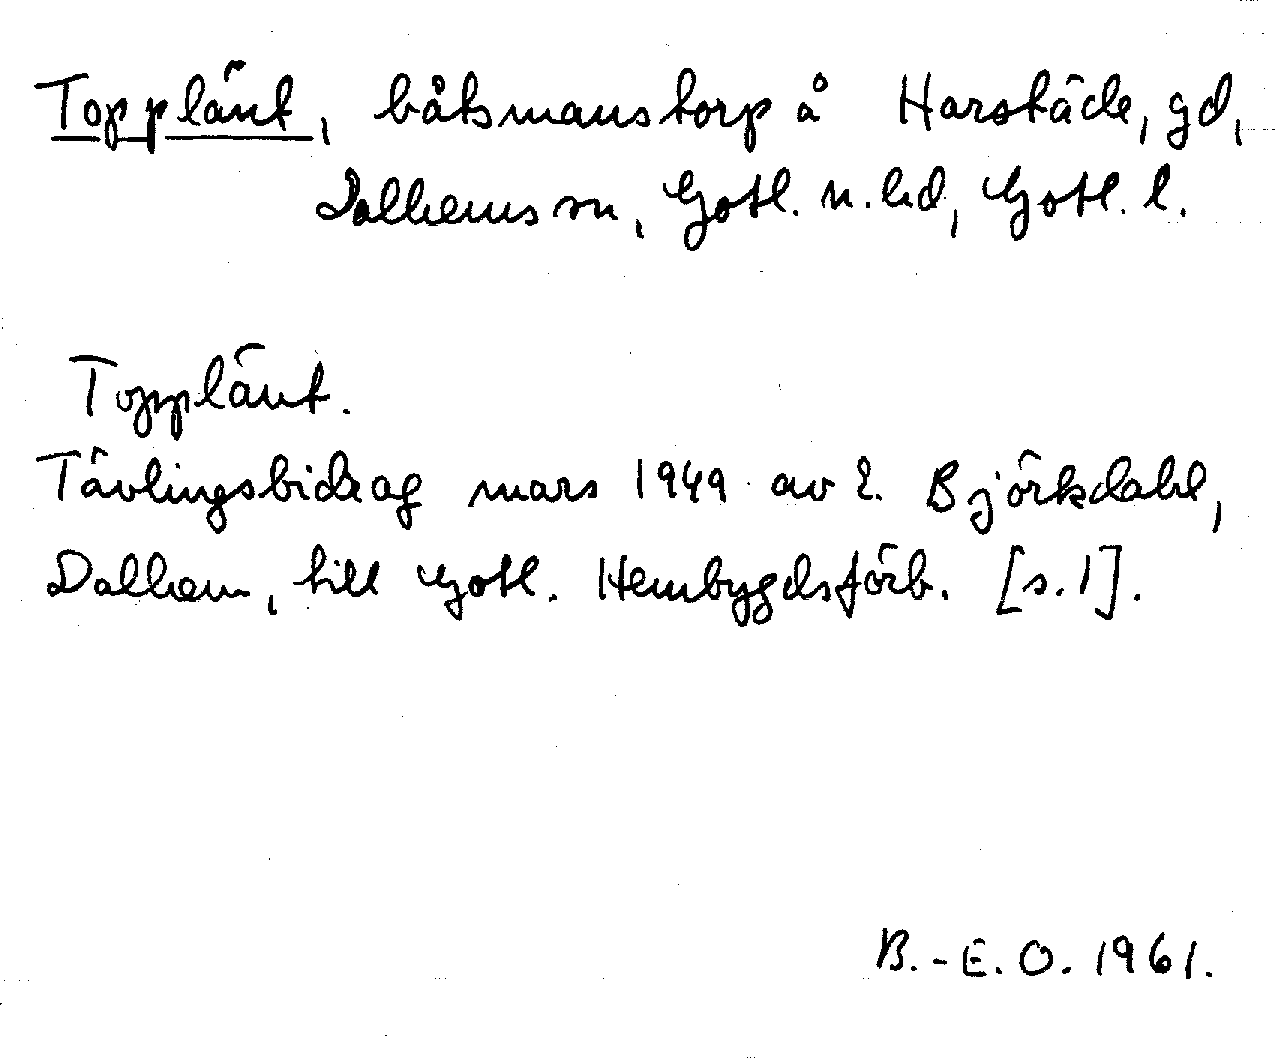 Toppländt, båtsmanstorp å Harstäde, gd,
Dalhems sn, Gotl. n. hd, Gotl. l.
Topplänt.
Tävlingsbidrag mars 1949 av E. Björkdahl,
Dalhem, till Gotl. Hembygdsförb. [s. 1].
B.-E. O. 1961.